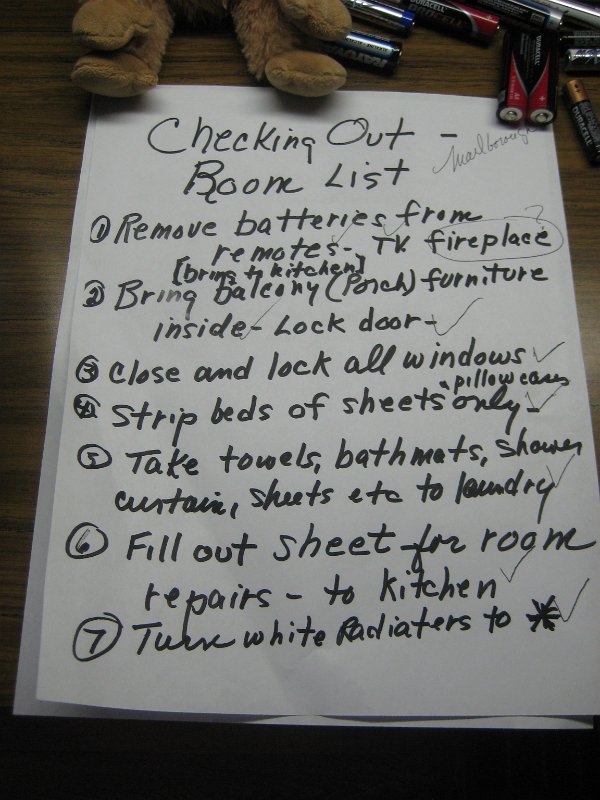 DURACELL
DURACELL
DURACELL
Checking Out -
Marlborough
Room List
① Remove batteries from
remotes - TV fireplace ?
[bring to kitchen]
② Bring balcony (Porch) furniture
inside - Lock door -
③ Close and lock all windows
" pillow cases
④ Strip beds of sheets only -
⑤ Take towels, bathmats, shower
curtain, sheets etc to laundry
⑥ Fill out sheet for room
repairs - to kitchen
⑦ Turn white Radiaters to *